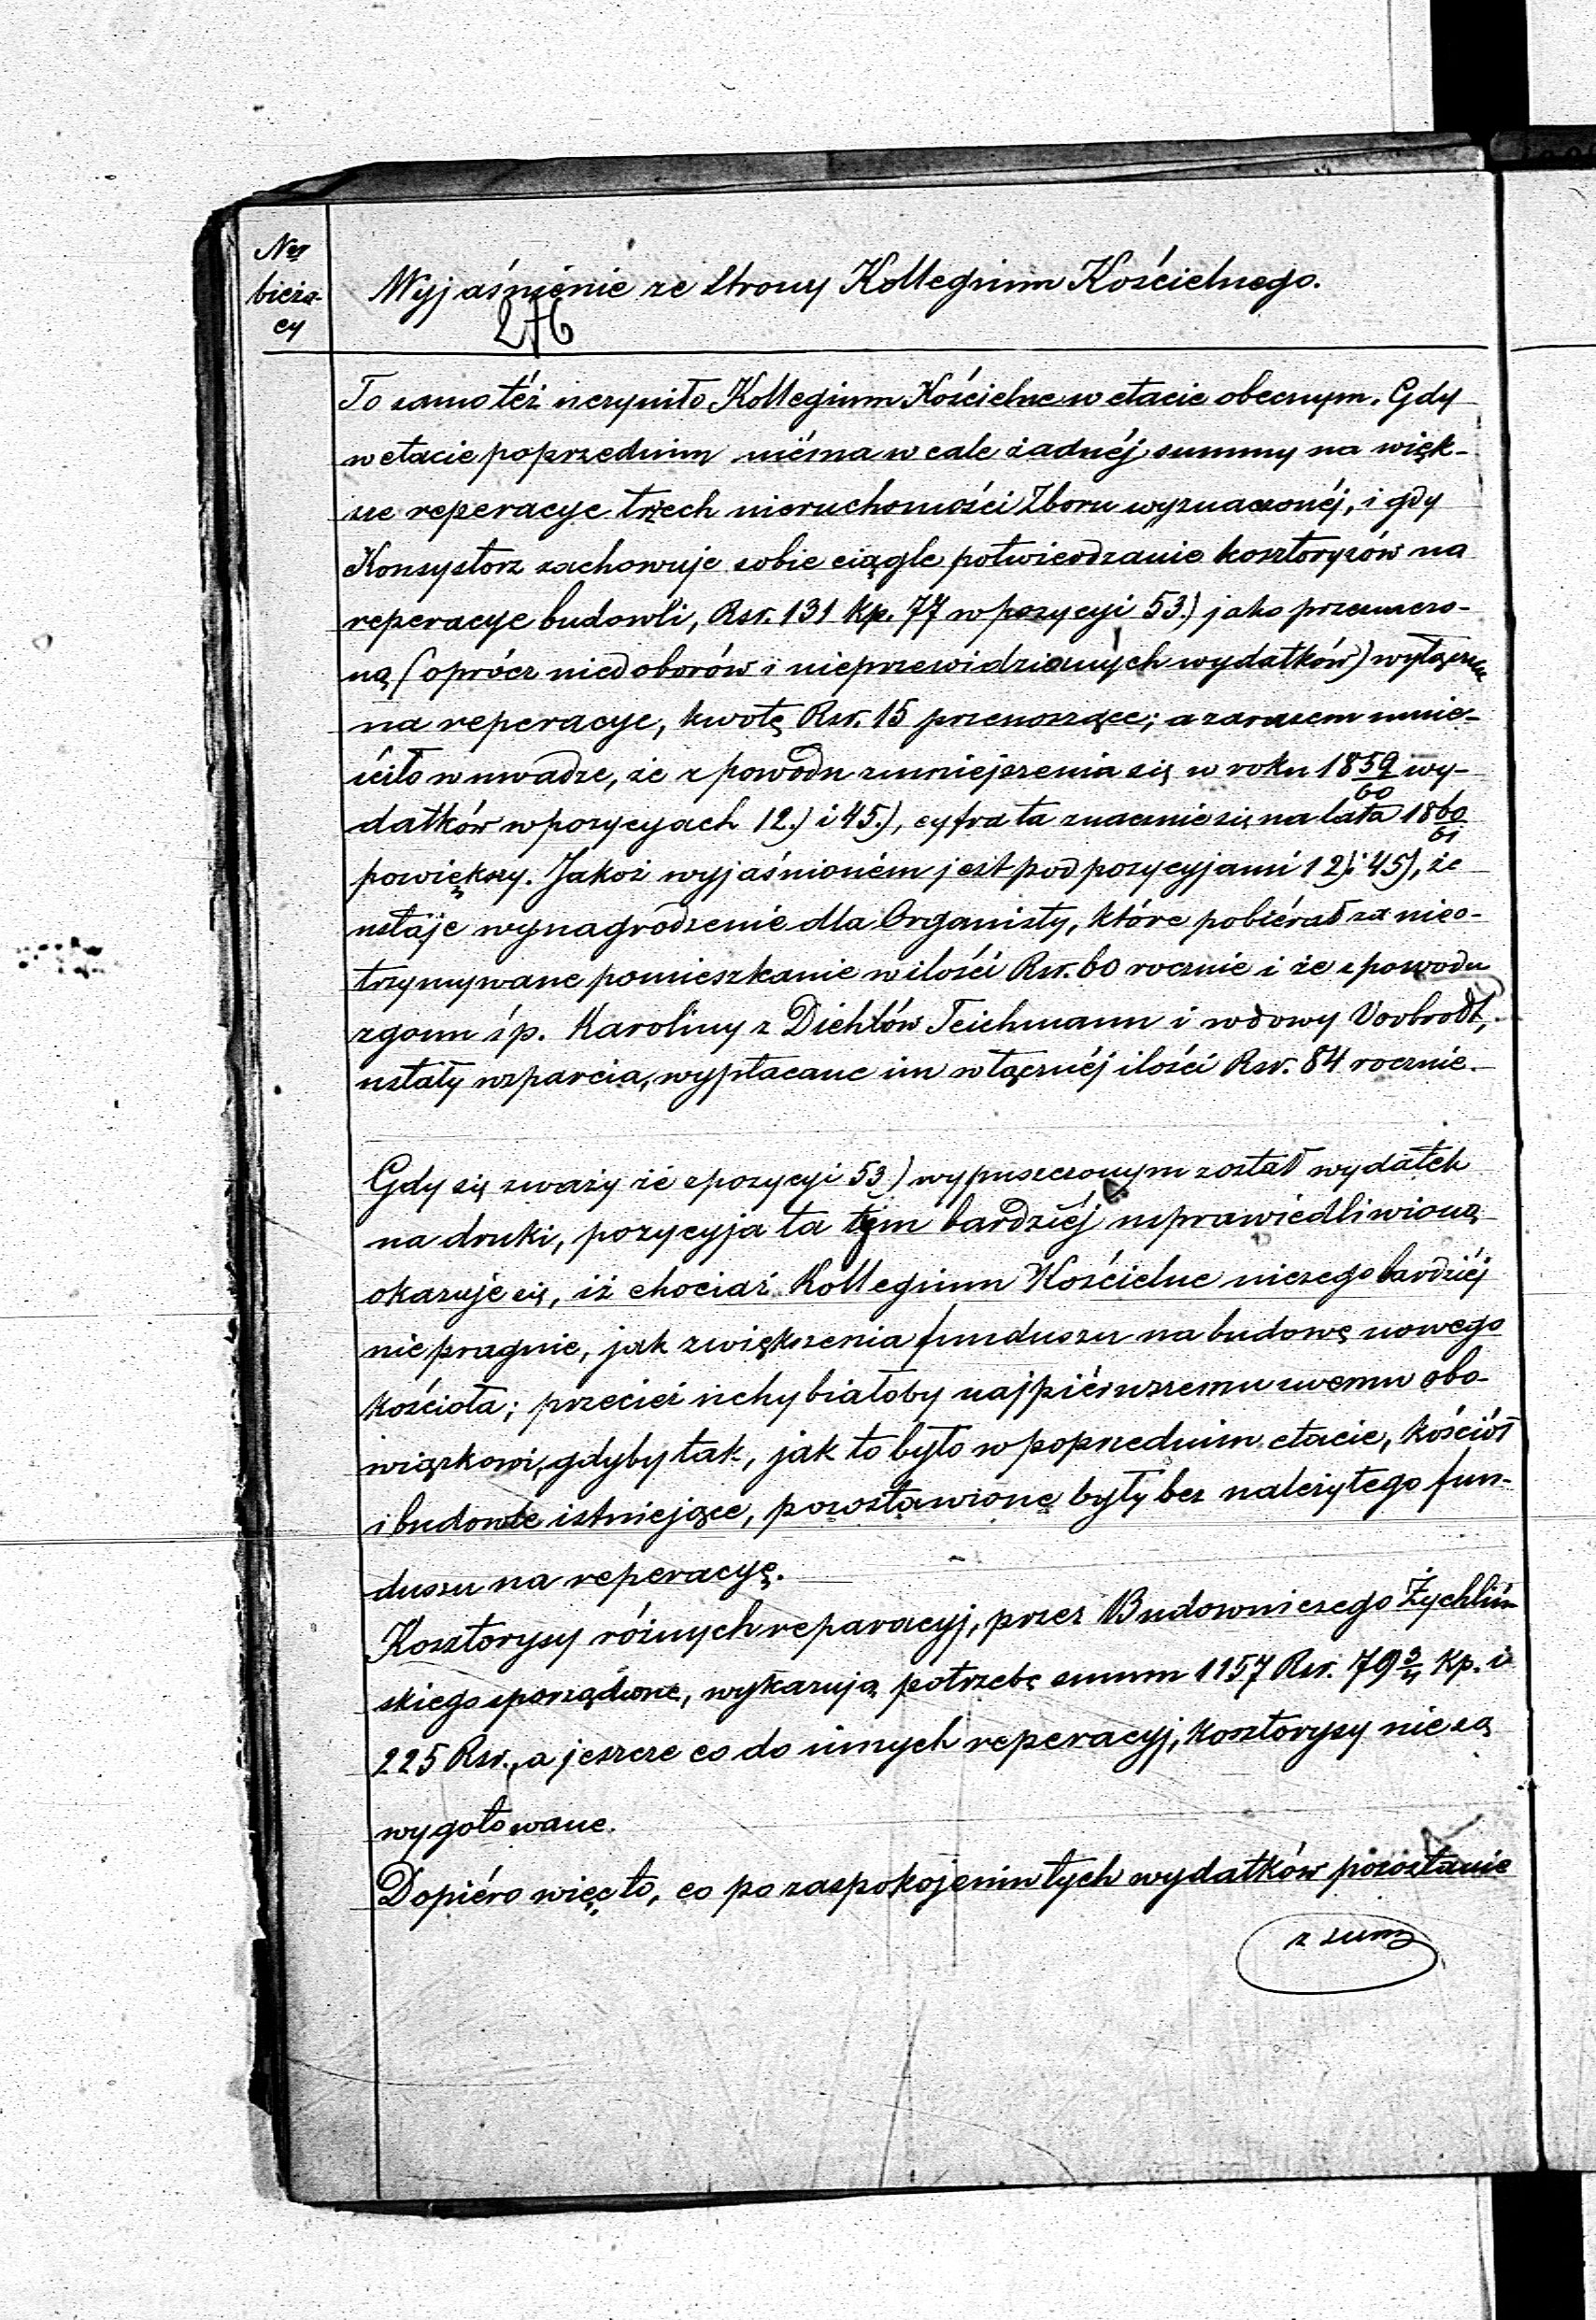 Ner
bieżą-
cy
Wyjaśnienie ze strony Kollegium Kościelnego.
276
To samo téż uczyniło Kollegium Kościelne w etacie obecnym. Gdy
w etacie poprzednim niéma w cale żadnéj summy na więk-
sze reperacye trzech nieruchomości Zboru wyznaczonéj, i gdy
Konsystorz zachowuje sobie ciągle potwierdzanie kosztorysów na
reperacye budowli, Rsr. 131 kp. 77 w pozycyi 53.) jako przeznaczo-
ną (oprócz niedoborów i nieprzewidzianych wydatków) wyłącznie
na reperacye, kwotę Rsr. 15 przenoszące; a zarazem mnie-
ściło w uwadze, że z powodu zmniejszenia się w roku 1859/60 wy-
datków w pozycyach 12.) i 45.), cyfra ta znacznie się na lata 1860/61
powiększy. Jakoż wyjaśnioném jest pod pozycyjami 12) i 45), że
ustaje wynagrodzenie dla Organisty, które pobiérał za nieo-
trzymywane pomieszkanie w ilości Rsr. 60 rocznie i że z powodu
zgonu śp. Karoliny z Diehlów Teichmann i wdowy Voobrodt,
ustały wsparcia, wypłacane im w łącznéj ilości Rsr. 84 rocznie.
Gdy się zważy że z pozycyi 53) wypuszczonym został wydatek
na druki, pozycyja ta tym bardziéj usprawiedliwioną
okazuje się, iż chociaż Kollegium Kościelne niczego bardziéj
nie pragnie, jak zwiększenia funduszu na budowę nowego
kościoła; przecież uchybiałoby najpiérwszemu swemu obo-
wiązkowi, gdyby tak, jak to było w poprzednim etacie, kościół
i budowle istniejące, pozostawione były bez należytego fun-
duszu na reperacyę.
Kosztorysy różnych reparacyj, przez Budowniczego Żychliń
skiego sporządzone, wykazują potrzebę summ 1157 Rsr. 79 3/4 kp. i
225 Rsr., a jeszcze co do innych reperacyj, kosztorysy nie są
wygotowane.
Dopiéro więc to, co po zaspokojeniu tych wydatków pozostanie
z sum